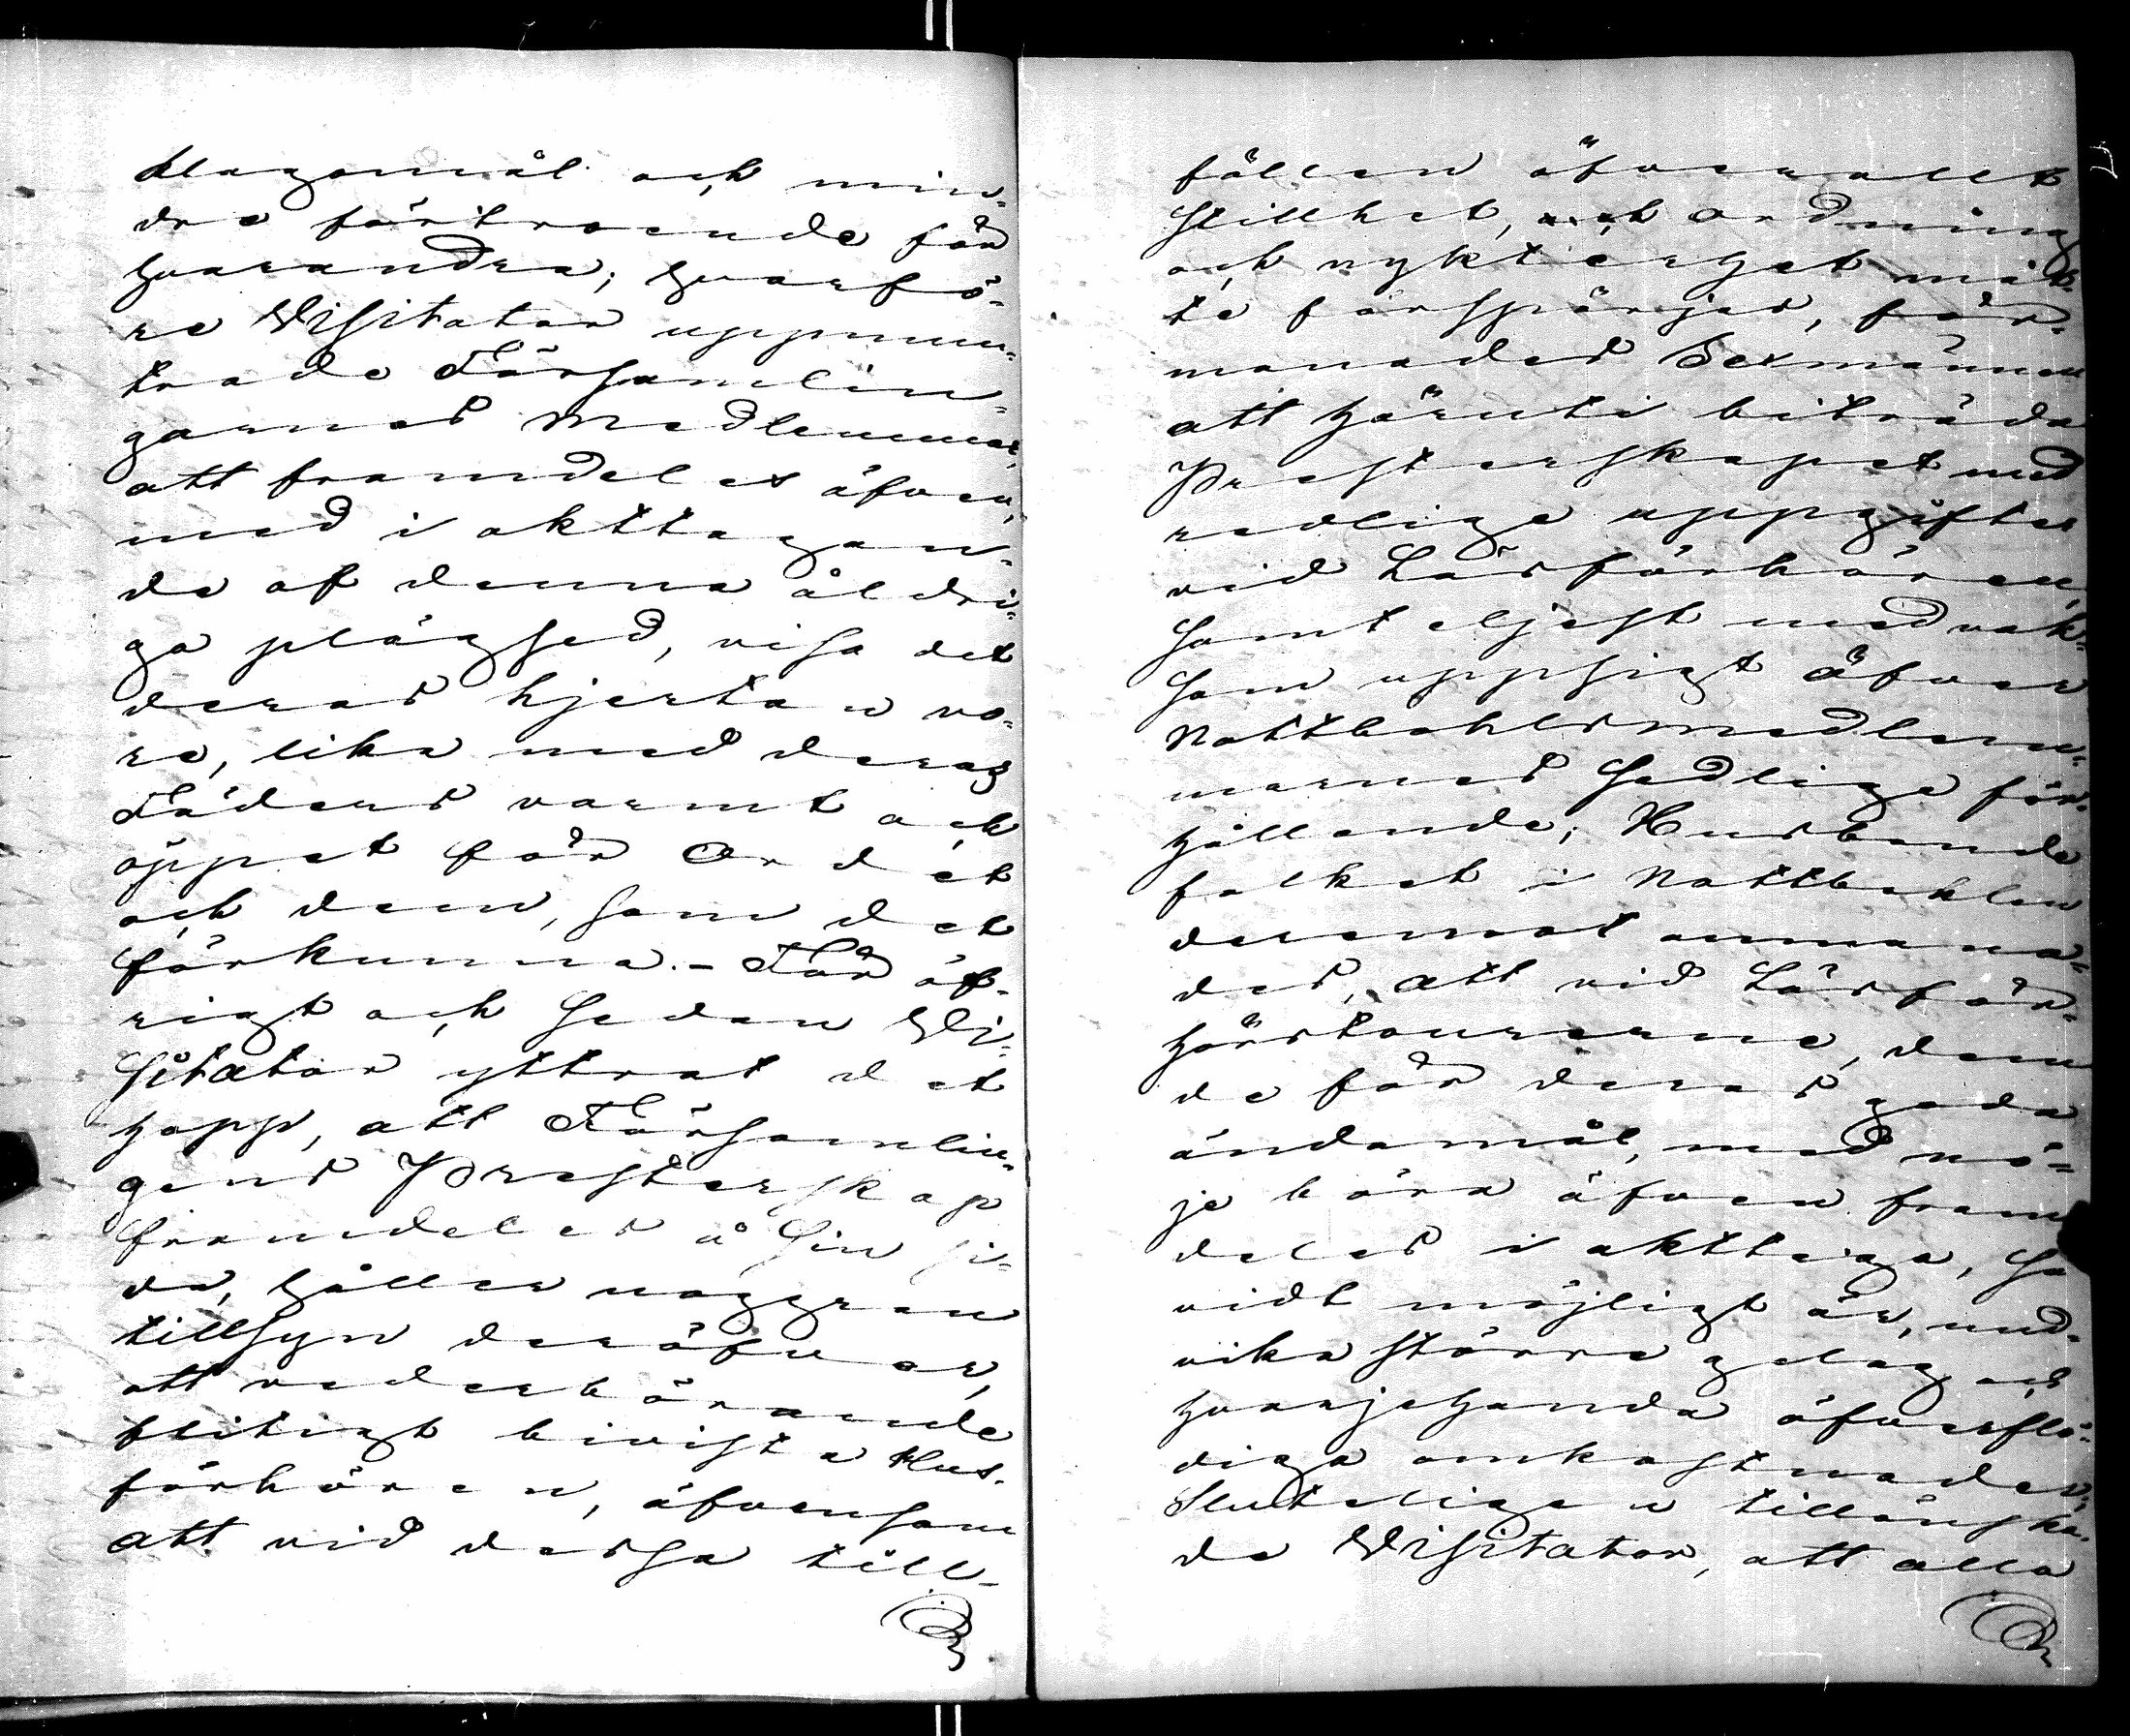 klagomål och min-
dre förtroende för
hvarandra; hvarfö-
re Visitator uppmun-
trade Församlin-
garnes Medlemmar,
att framdeles äfven,
med i akttagan-
de af denna åldri-
ga plägsed, visa det
deras hjertan vo-
re, lika med deras
Fäders varmt och
öppet för Ordet
och dem, som det
förkunna. - För öf-
rigt och sedan Vi-
sitator yttrat det
hopp, att Församlin-
gens Presterskap
framdeles å sin si-
da, håller noggran
tillsyn deröfver,
att vederbörande
flitigt bivista Hus-
förhören, äfvensom
att vid dessa till-
fällen öfverallt
stillhet, och ordning
och nykterhet måt-
te försspörjas, för-
manades Sexmännen
att häruti biträda
Presterskapet med
redliga uppgifter
vid Läsförhören,
samt eljest med vak-
sam uppsigt öfver
Nattbohlsmedlem-
marnes sedliga för-
hållande; Husbonde
folket i Nattbohlen
deremot anmana-
des, att vid Läsför-
hörstourerne, dem
de för deras goda
ändamål, med nö-
je böra äfven fram
deles i akttaga, så
vidt möjligt är, und-
vika större gelag och
hvarjehanda öfverflö-
diga omkostnader.
Sluteligen tillönska-
de Visitator, att alla